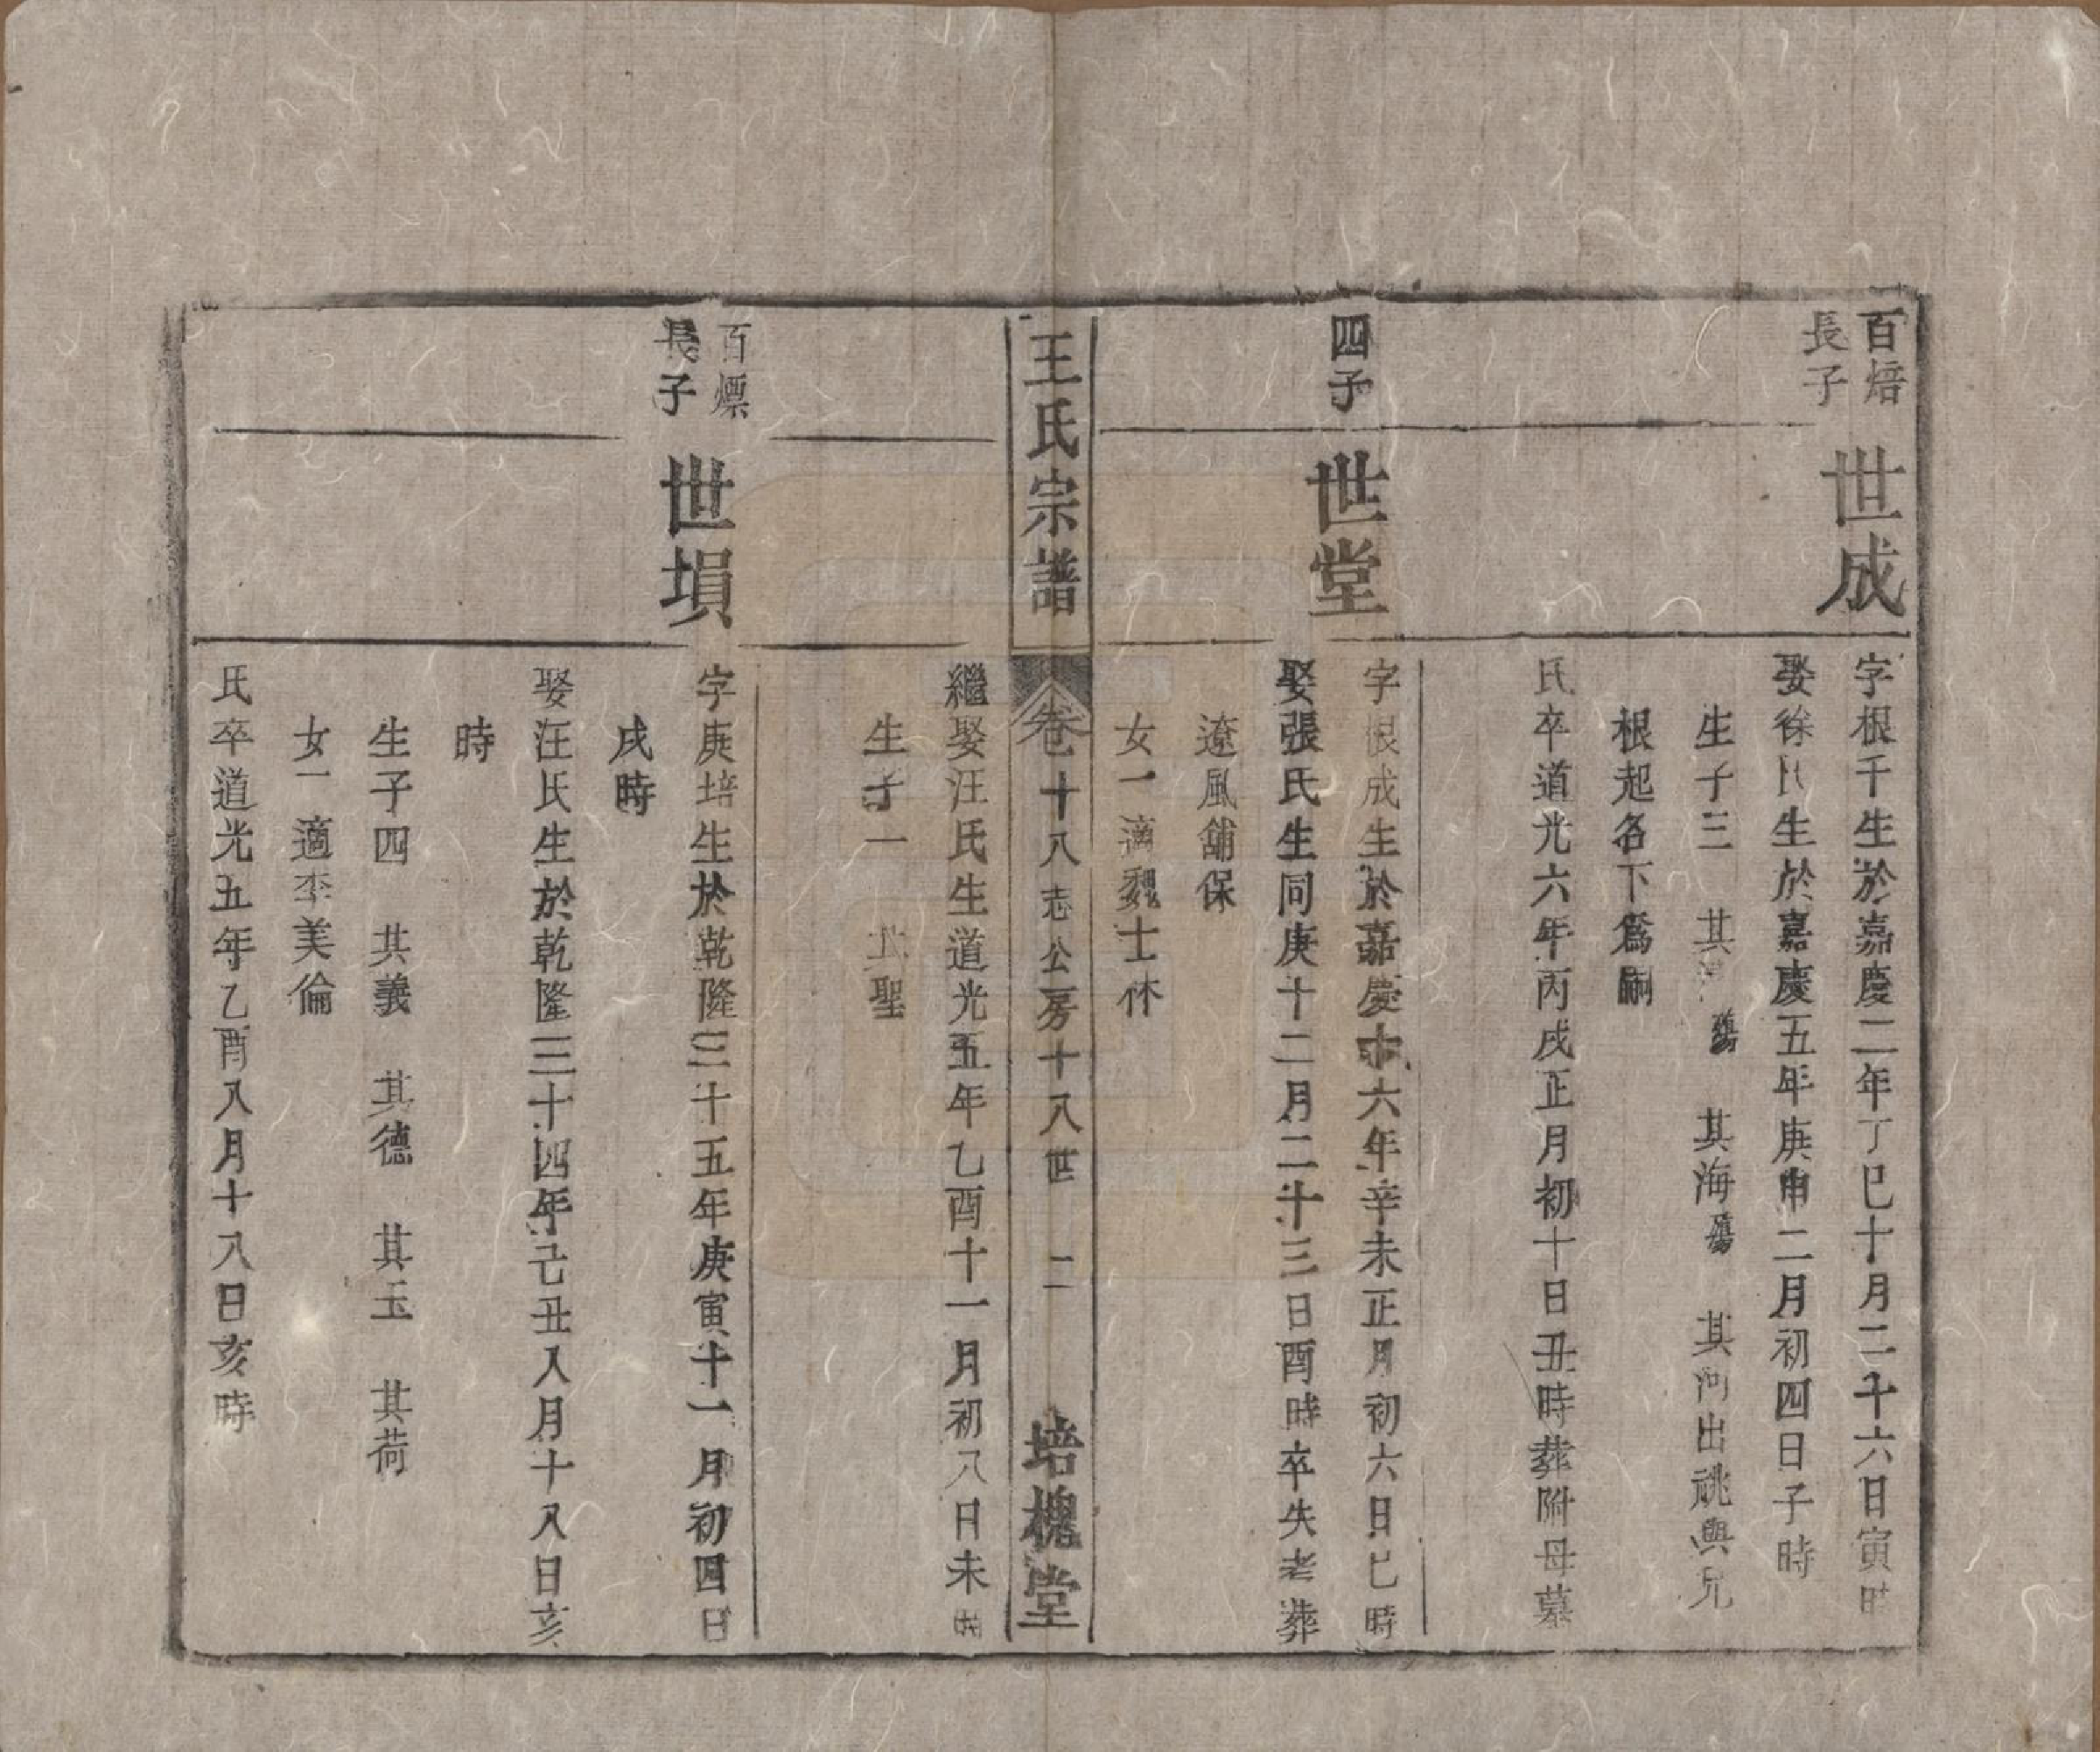 百焙
長子
世成
字根千生於嘉慶二年丁巳十月二十六日寅時
娶徐氏生於嘉慶五年庚申二月初四日子時
生子三　其　殤　其海殤　其河出祧與兄
根起名下爲嗣
氏卒道光六年丙戌正月初十日丑時葬附母墓
四子
世堂
字根成生於嘉慶十六年辛未正月初六日巳時
娶張氏生同庚十二月二十三日酉時卒失老葬
遼風舖保
女一適魏士休
王氏宗譜
卷十八志公房十八世　二
培槐堂
繼娶汪氏生道光五年乙酉十一月初八日未時
生子一　其聖
百㷸
長子
世塤
字庚培生於乾隆三十五年庚寅十一月初四日
戌時
娶汪氏生於乾隆三十四年己丑八月十八日亥
時
生子四　其義　其德　其玉　其荷
女一適李美倫
氏卒道光五年乙酉八月十八日亥時